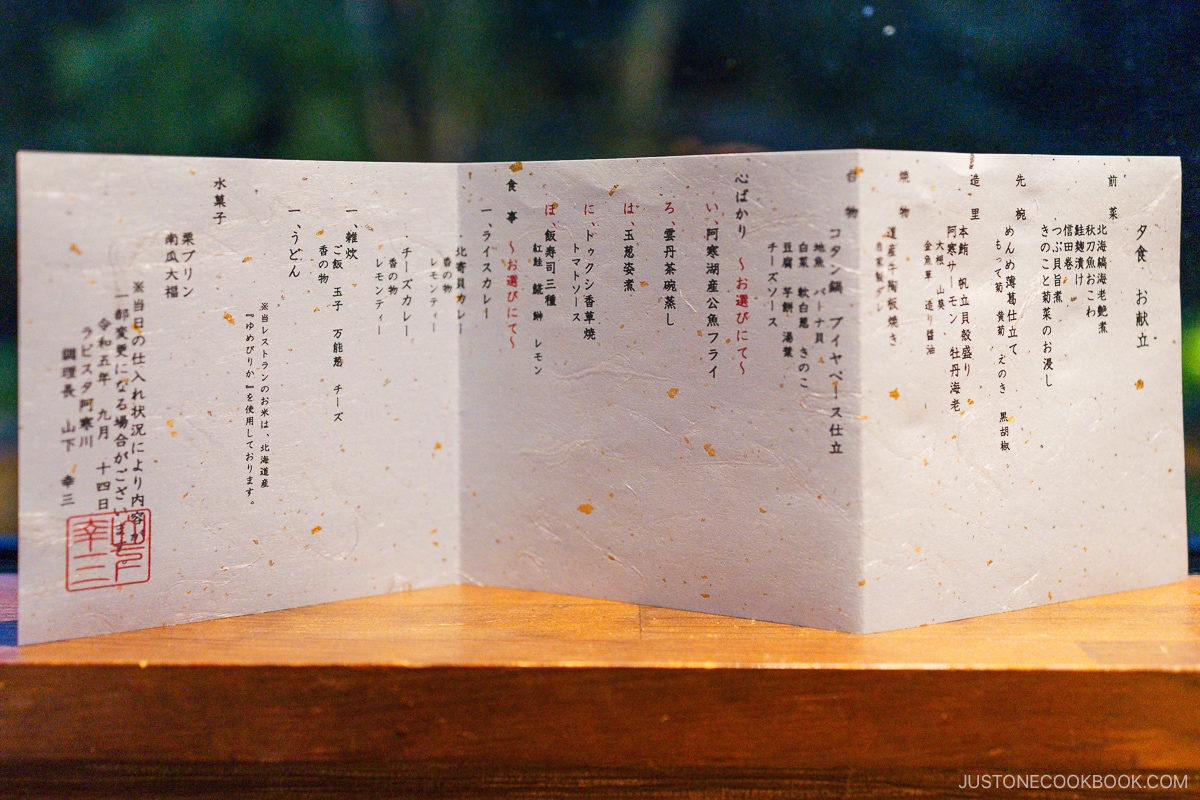 夕食 お献立
前菜
北海縞海老艶煮
秋刀魚おこわ
鮭麹漬け
信田巻
つぶ貝旨煮
きのこと菊菜のお浸し
先椀
めんめ薄葛仕立て
もって菊 黄菊 えのき 黒胡椒
造里
本鮪 帆立貝殻盛り
阿寒サーモン 牡丹海老
大根 山葵
金魚草 造り醤油
焼物
道産牛陶板焼き
台物
コタン鍋 ブイヤベース仕立
地魚 パートナ貝
白菜 軟白葱 きのこ
豆腐 芋餅 湯葉
チーズソース
心ばかり ～お選びにて～
い、阿寒湖産公魚フライ
ろ、雲丹茶碗蒸し
は、玉葱姿煮
に、トゥクシ香草焼
トマトソース
ほ、飯寿司三種
紅鮭 鯡 鰰 レモン
食事 ～お選びにて～
一、ライスカレー
北寄貝カレー
香の物
レモンティー
チーズカレー
香の物
レモンティー
一、雑炊
ご飯 玉子 万能葱 チーズ
香の物
一、うどん
※当レストランのお米は、北海道産
『ゆめぴりか』を使用しております。
水菓子
栗プリン
南瓜大福
※当日の仕入れ状況により内容が
一部変更になる場合がございます。
令和五年 九月 十四日
ラビスタ阿寒川
調理長 山下 幸三
山下
幸三
JUSTONECOOKBOOK.COM